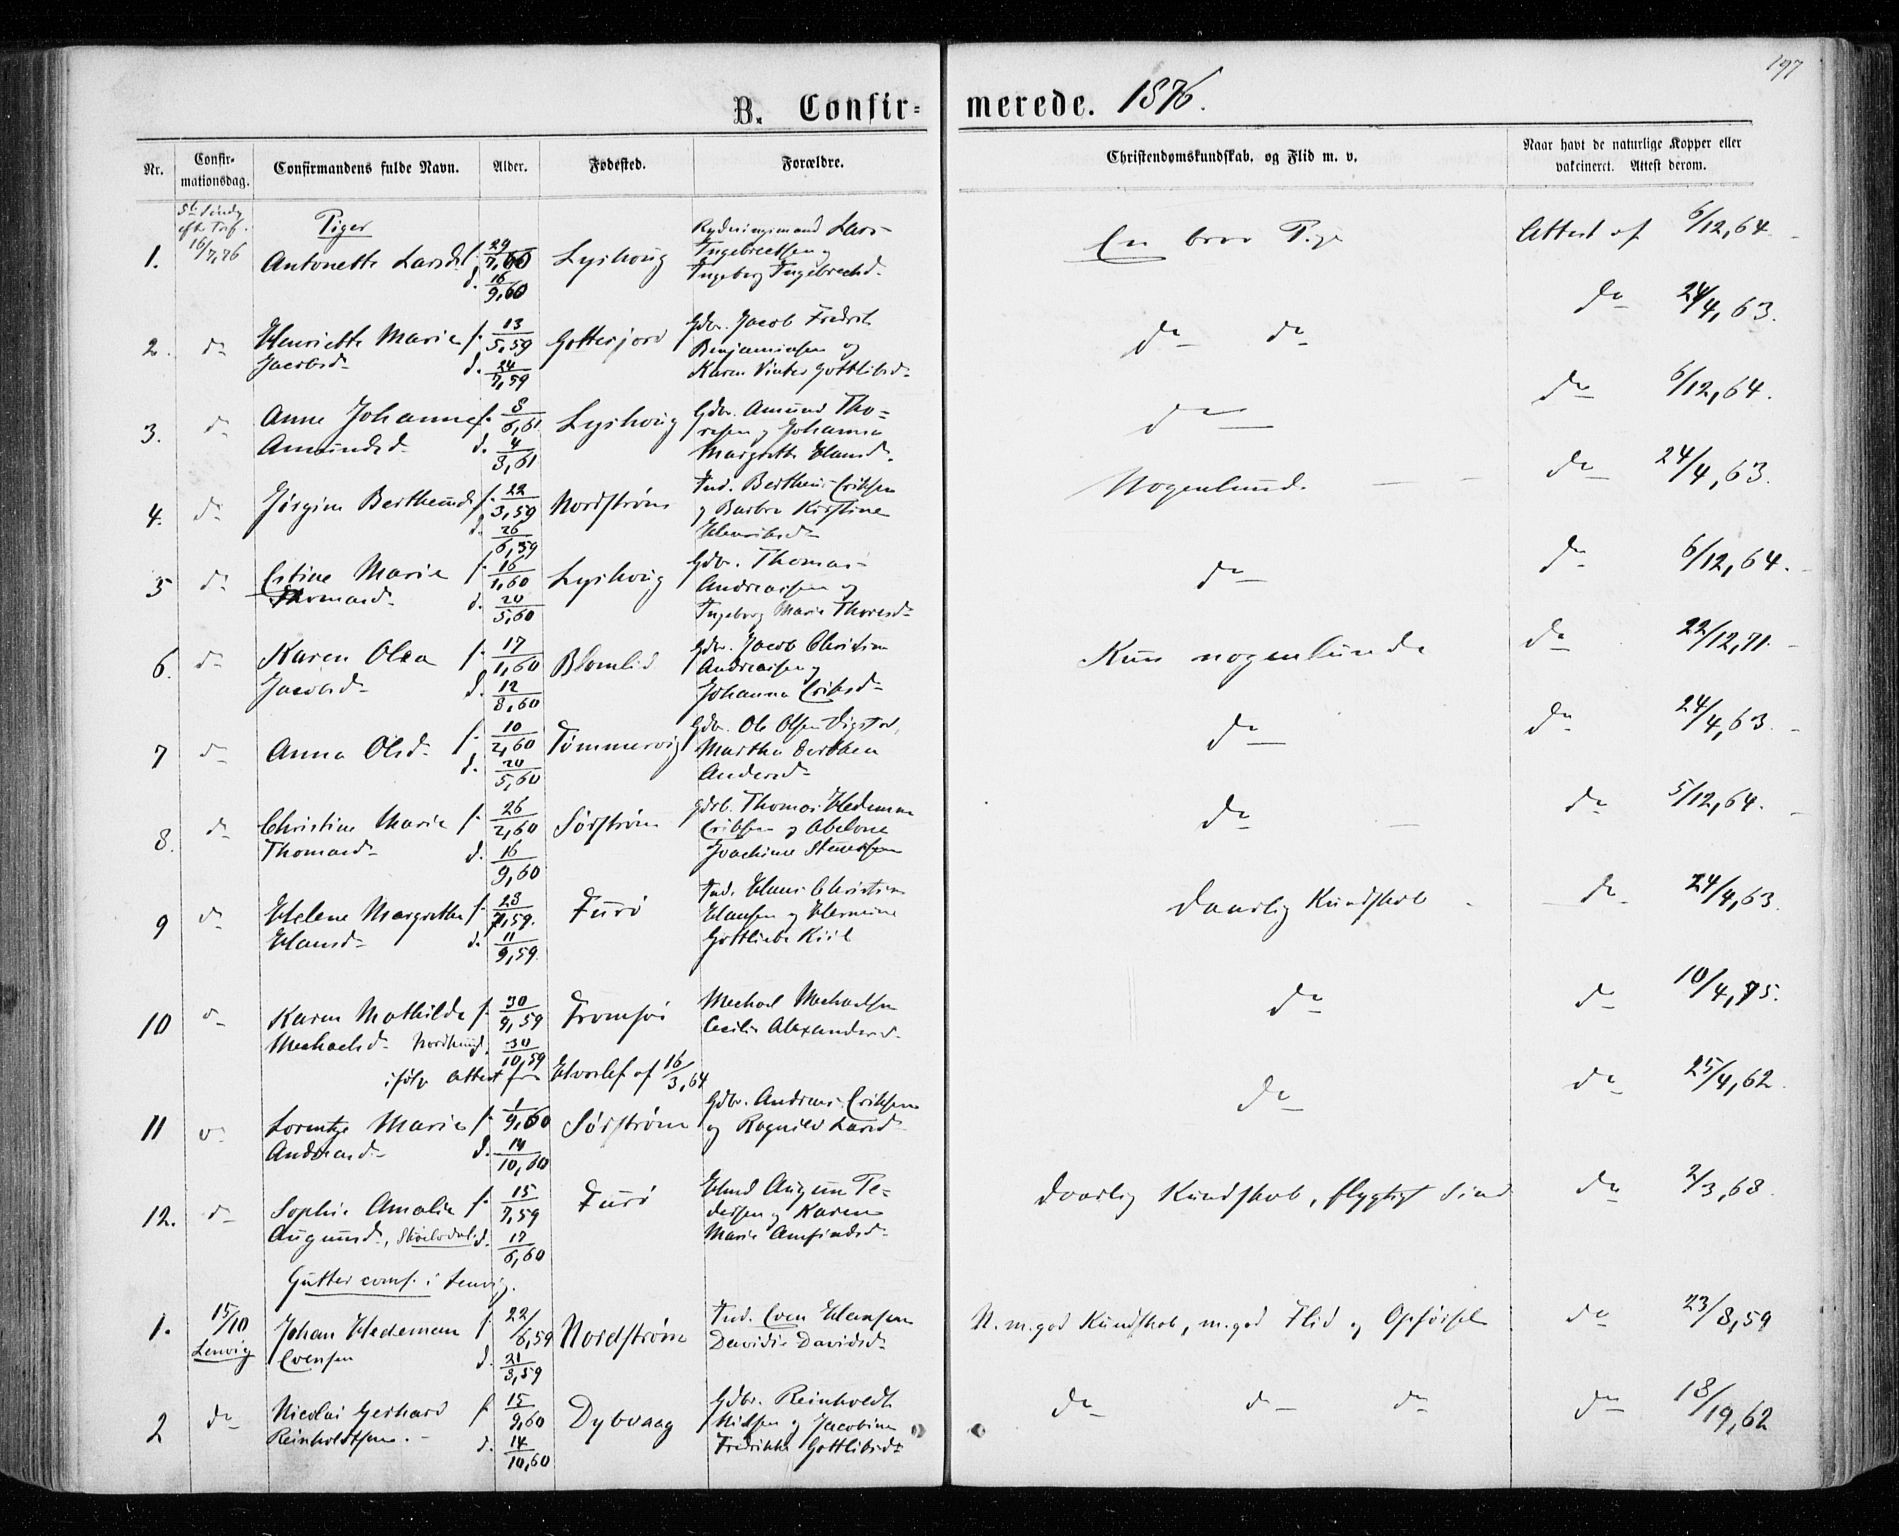 197
B. Confir= merede. 1876.
Nr. Confir-mationsdag. Confirmandens fulde Navn. Alder. Fødested. Forældre. Christendomskundskab, og Flid m. v. Naar havt de naturlige Kopper eller vakcineret. Attest derom.
Piger
1. 16/7,76 Antonette Larsd. f. 29/7,60 d. 16/9,60 Lyshoug Rydningsmand Lars Ingebrectsen og Ingeborg Ingebrectsd. En brav Pige Attest af 6/12,64
2. do Henriette Marie Jacobsd. f. 13/5,59 d. 24/7,59 Gottesjord Gdbr. Jacob Fredrik Benjaminsen og Karen Vinter Gottlibsd. do do do 24/4,63.
3. do Anne Johanne Amundsd. f. 8/6,61 d. 4/8,61 Lyshoug Gdbr. Amund Thoresen og Johanna Margrethe Hansd. do do 6/12,64.
4. do Jørgine Bertheusd. f. 22/3,59 d. 26/6,59 Nordstrøm Ind. Bertheus Eriksen og Barbra Kirstine Henriksd. Nogenlund. do 24/4,63.
5 do Estine Marie Thomasd. f. 16/1,60 d. 20/5,60 Lyshoug Gdbr. Thomas Andreassen og Ingeborg Marie Thoresd. do do 6/12,64.
6. do Karen Olea Jacobsd. f. 17/1,60 d. 12/8,60 Blomlid Gdbr. Jacob Christian Andreassen og Johanna Eriksd. Kun nogenlunde do 22/12,71.
7 do Anna Olsd. f. 10/2,60 d. 20/5,60 Tømmervig Gdbr. Ole Olsen Martha Dorthea Andersd. do do 24/4,63.
8. do Christine Marie Thomasd. f. 26/2,60 d. 16/9,60 Sørstrøm gdrb. Thomas Hedeman Eriksen og Abelone Joachime do do 5/12,64.
9 do Helene Margrethe Hansd. f. 23/7,59. d. 11/9,59. Furø Ind. Hans Christian Hansen og Hermine Gottliebe Kiil Daarlig Kundskab do 24/4,63.
10 do Karen Mathilde Mechaelsd. f. 30/9,59 30/10,59 Tromsøe Mechael Mechaelsen Cecilie Alexandersd. do do 10/4,75.
ifølge Attest fra af 16/3,64
11 do Lorentze Marie Andreasd. f. 1/9,60 d. 14/10,60 Sørstrøm Gdbr. Andreas Eriksen og Ragnild Larsd. do do 25/4,62
12. do Sophie Amalie Augunsd., f. 15/7,59 d. 17/6,60 Furø Hmd Augun Pedersen og Karen Marie Amfindsd. Daarlig Kundskab, flygtigt Sind do 2/3,68.
Gutter conf. i Lenvig.
1. 15/10 Lenvig Johan Hedeman Evensen f 22/6,59 d. 21/8,59 Nordstrøm Ind. Even Hansen Davidie Davidsd. N.m.god Kundskab, m.god Flid og Opførsel do 23/8,59
2 do Nicolai Gerhard Reinholdtsen. f 15/9,60 d. 14/10,60 Dybvaag Gdbr. Reinholdt Nilsen og Jacobine Fredrikke Gottlibsd. do do do do 18/19,62